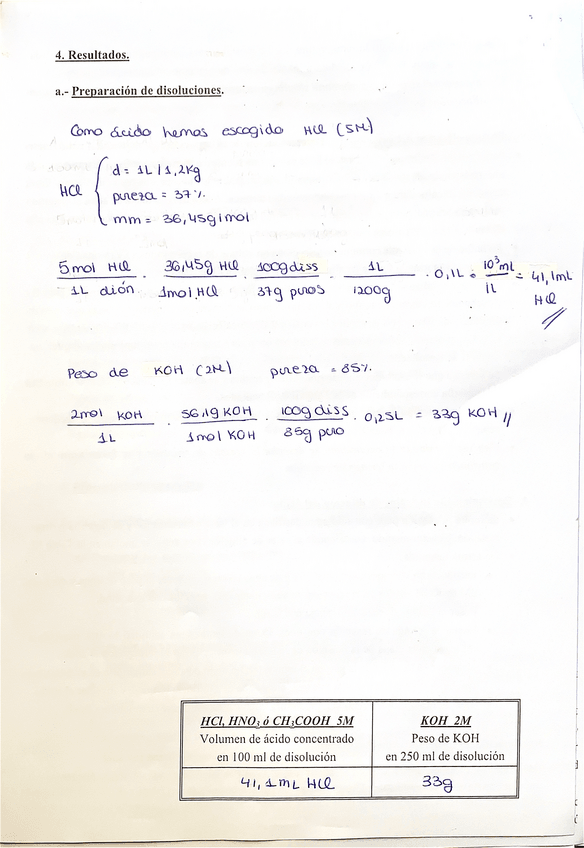 4. Resultados.
a.- Preparación de disoluciones.
Como ácido hemos escogido HCl (5M)
HCl { d = 1L / 1,2Kg
pureza = 37%
mm = 36,45g/mol
5mol HCl / 1L dión · 36,45g HCl / 1mol HCl · 100g diss / 37g puros · 1L / 1200g · 0,1L · 10³mL / 1L = 41,1mL HCl //
Peso de KOH (2M) pureza = 85%
2mol KOH / 1L · 56,1g KOH / 1mol KOH · 100g diss / 85g puro · 0,25L = 33g KOH //
HCl, HNO₃ ó CH₃COOH 5M
Volumen de ácido concentrado
en 100 ml de disolución
41,1mL HCl
KOH 2M
Peso de KOH
en 250 ml de disolución
33g